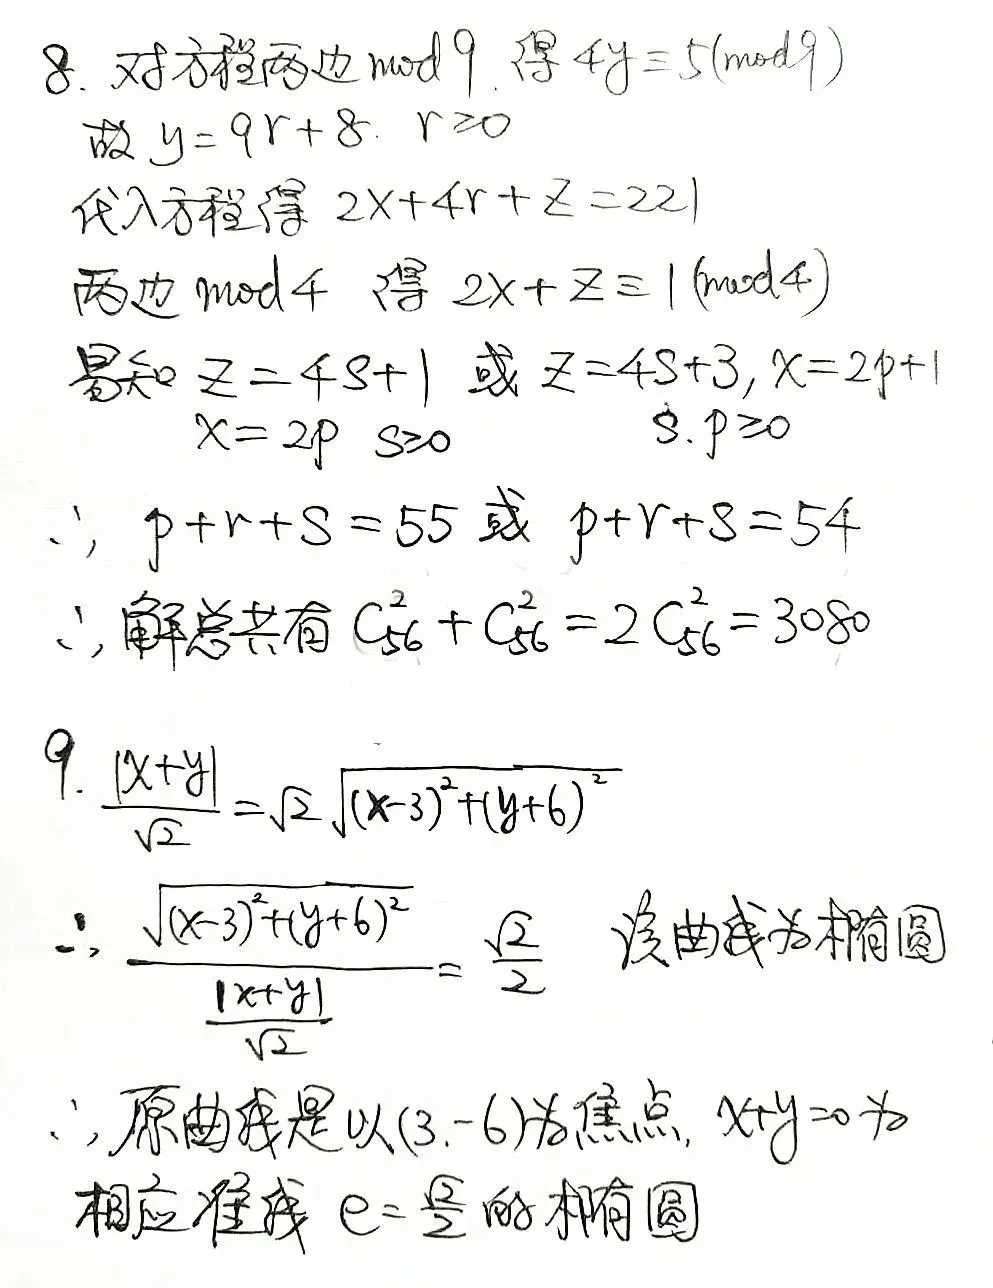 8. 对方程两边mod9. 得4y≡5(mod9)
故 y=9r+8. r≥0
代入方程得 2x+4r+z=221
两边mod4 得 2x+z≡1(mod4)
易知 z=4s+1 或 z=4s+3, x=2p+1
x=2p s≥0 s.p≥0
∴ p+r+s=55 或 p+r+s=54
∴解总共有 C²₅₆+C²₅₆=2C²₅₆=3080
9. |x+y|/√2=√2√((x-3)²+(y+6)²)
∴ √((x-3)²+(y+6)²)/(|x+y|/√2)=√2/2 该曲线为椭圆
∴原曲线是以(3.-6)为焦点, x+y=0为
相应准线 e=√2/2的椭圆